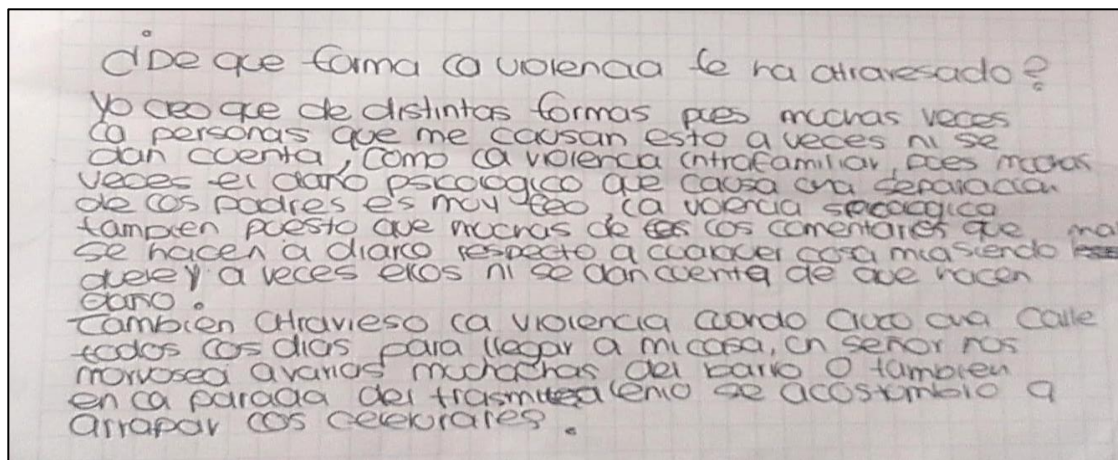 ¿De que forma la violencia te ha atravesado?
Yo creo que de distintas formas pues muchas veces
la personas que me causan esto a veces ni se
dan cuenta, como la violencia intrafamiliar, pues muchas
veces el daño psicologico que causa una separacion
de los padres es muy feo, la violencia
tambien puesto que muchas de los comentarios que
se hacen a diario respecto a cualquier cosa
duele y a veces ellos ni se dan cuenta de que hacen
daño.
Tambien atravieso la violencia cuando cruzo una calle
todos los dias para llegar a mi casa, un señor nos
morvosea a varias muchachas del barrio o tambien
en la parada del se acostumbro a
arrapar los